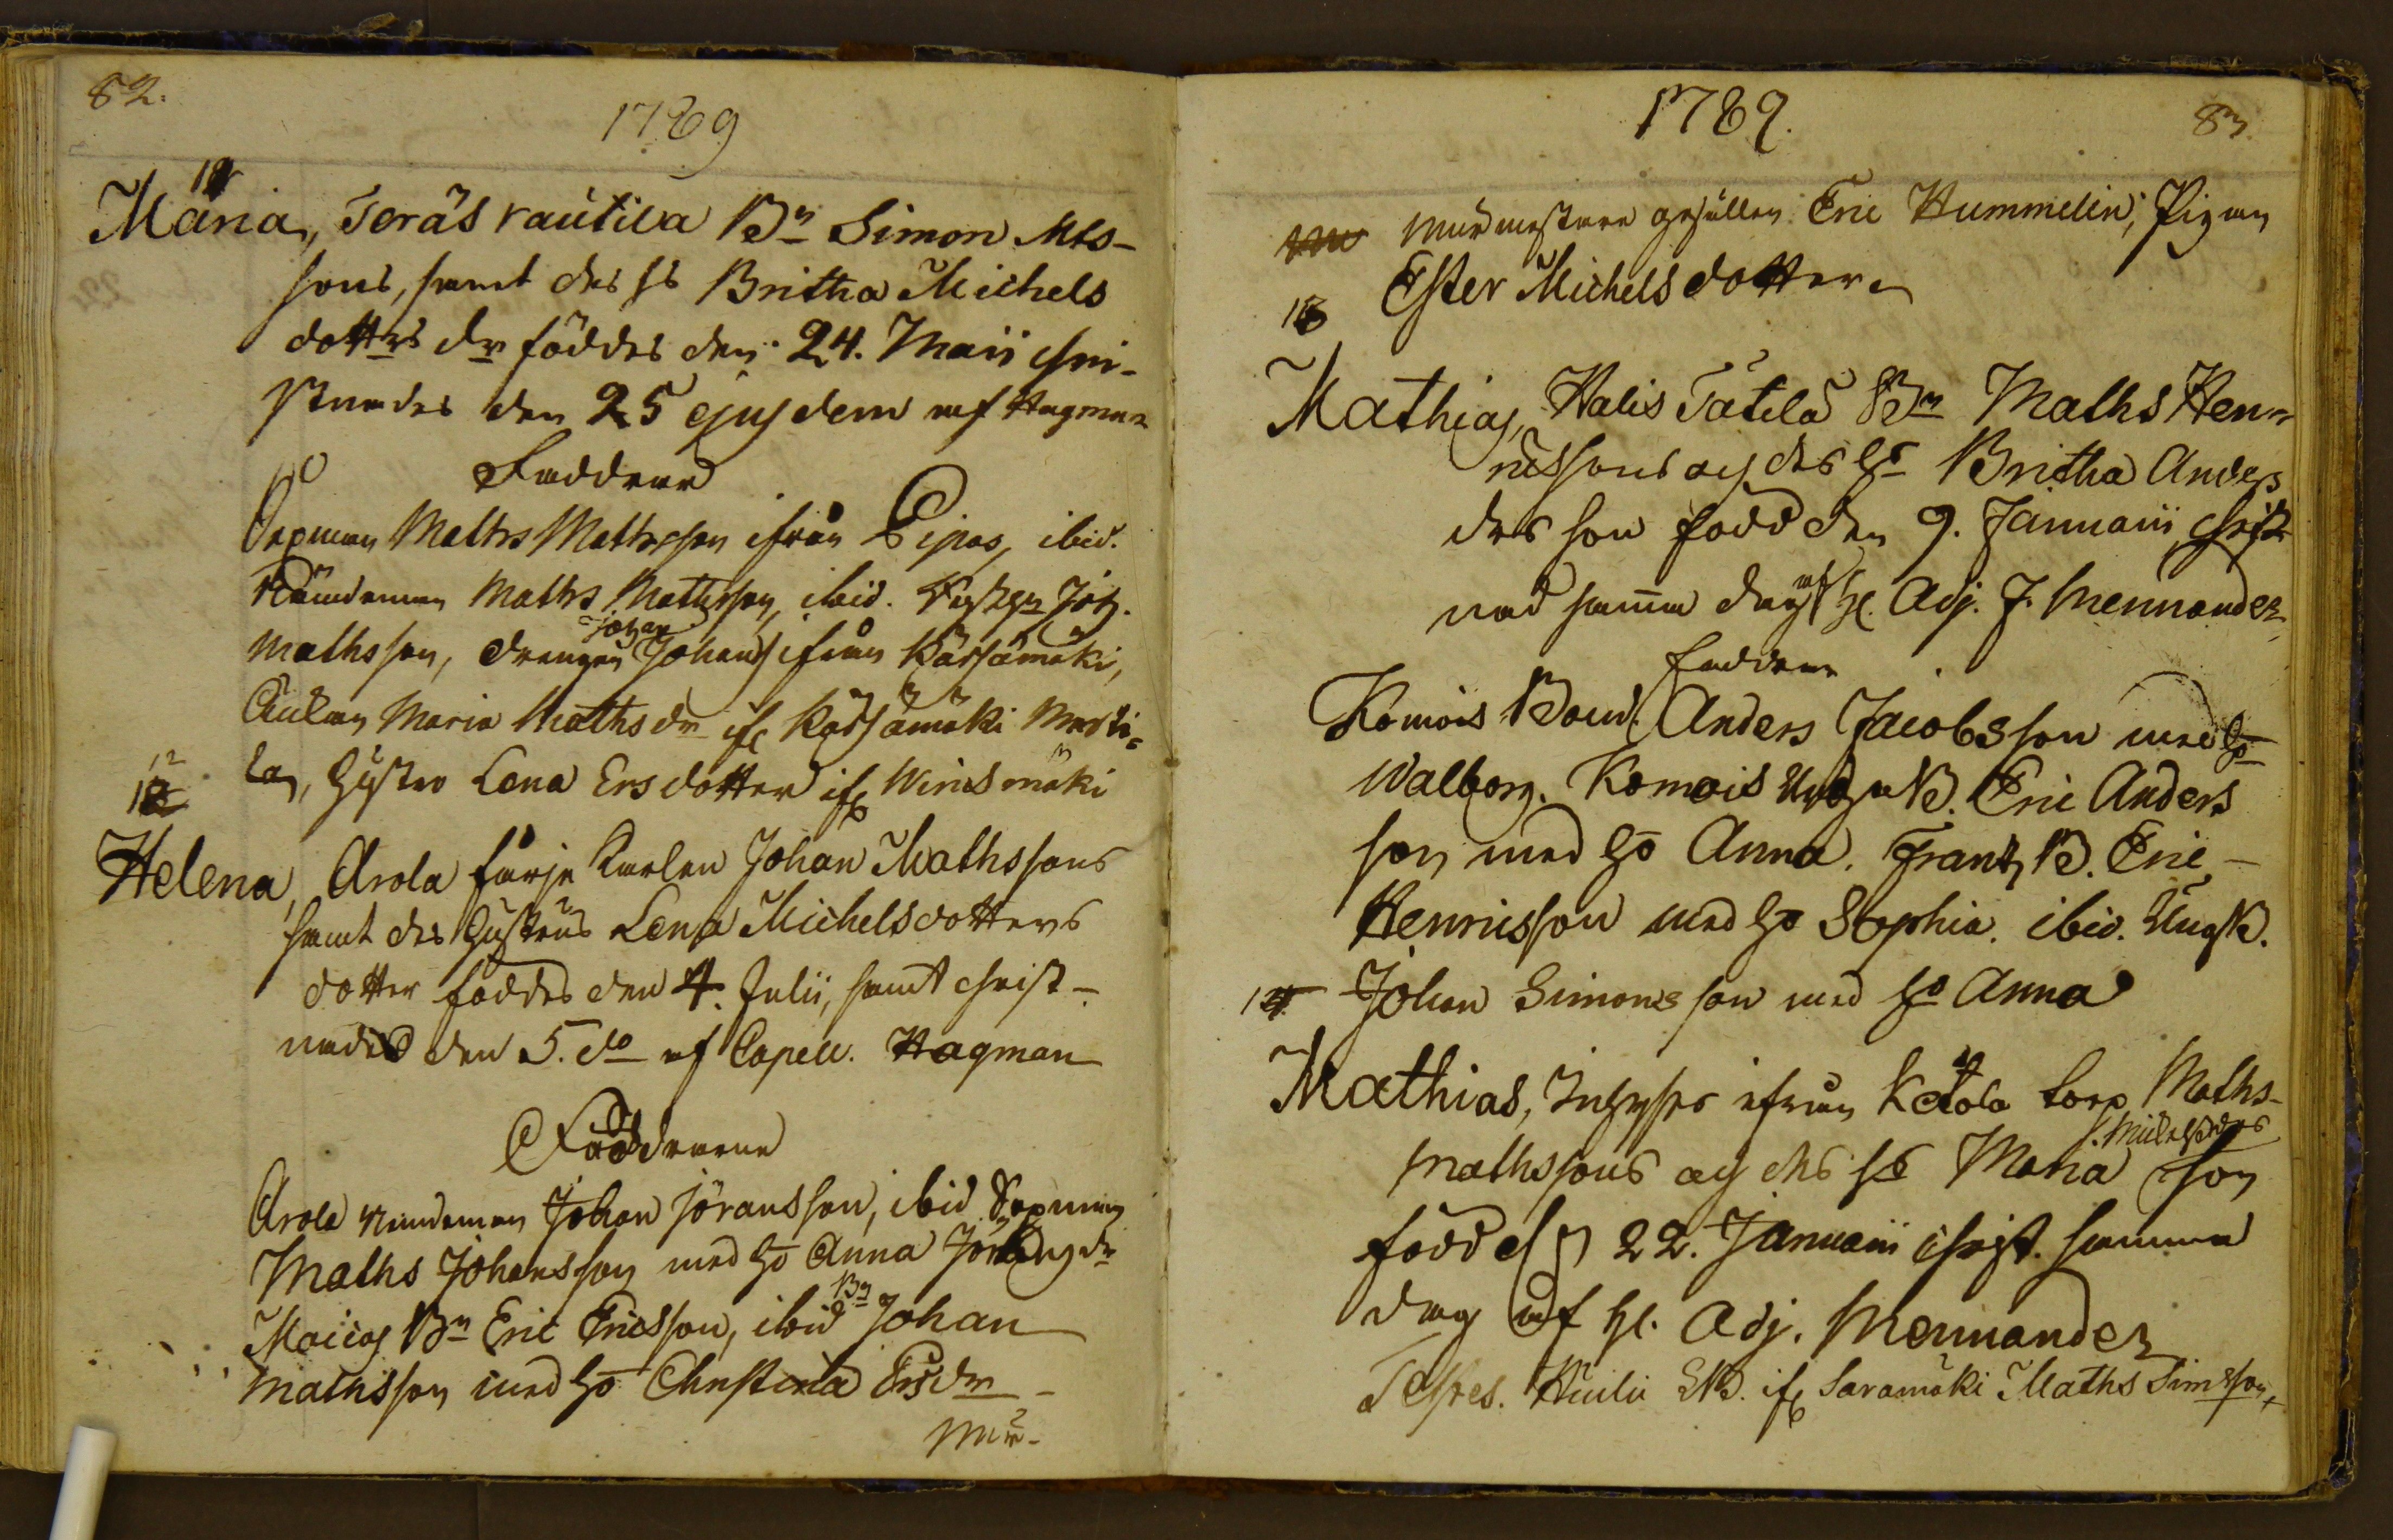 82.
1789
Maria, Teräs rautila Bn Simon Mts-
sons, samt des hs Britha Michels
dottrs dr föddes den 24. Maii chri-
stnades den 25 ejusdem af Hagman
Faddrar
Sexman Maths Mathsson ifrån Pipas, ibid.
Nämdeman Maths Mathsson, ibid. Joh.
Mathsson, drengen Johan ifrån Kärsämäki,
Enkan Maria Mathsdr ifr Kärsämäki Marti-
la, Hustro Lena Ersdotter ifr Wirismäki
12
Helena, Arola färje Karlen Johan Mathssons
samt des hustrus Lena Michelsdotters
dotter föddes den 4. Julii, samt christ-
nades den 5. do af Capell. Hagman
Faddrarne
Arola Nämdeman Johan Jöransson, ibid Sexman
Maths Johansson med ho Anna
Bn
Bn Eric Ericsson, ibid Johan
Mathsson med ho Christina Ersdr
Mur-
1789.
83
Murmestare gesällen Eric Hummelin, Pigan
Ester Michelsdotter
13
Mathias, Halis Tätilä Bn Maths Hen-
ricssons och des hs Britha Anders
drs son född den 9. Januarii christ-
nad samma dag af hl. Adj. J. Mennander
Faddrar
Komois Bond. Anders Jacobsson med ho
Walborg. Komois Unge B. Eric Anders
son med ho Anna. Frantz B. Eric
Henricsson med ho Sophia. ibid. Ung B.
14 Johan Simonsson med ho Anna
Mathias, Inhyses ifrån Ketola torp Maths
Mathssons och des hs Maria Michelsdrs son
född d 22. Januarii christ. samma
dag af hl. Adj. Mennander
Testes. Huilii B. ifr Saramäki Maths Simsson,